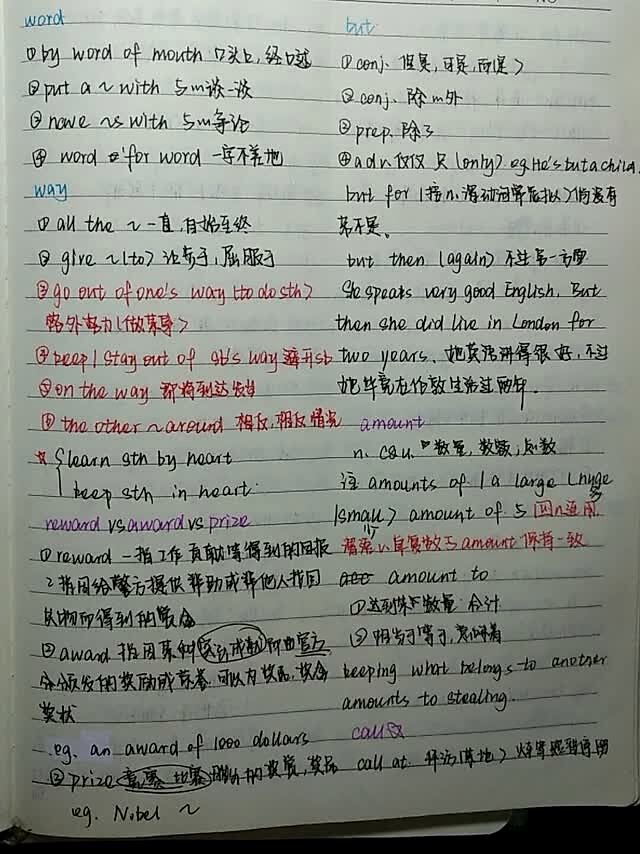 word
①by word of mouth 口头上,经口述
②put a ~ with 与m谈一谈
③have ~s with 与m争论
④ word for word 一字不差地
way
① all the ~ 一直,自始至终
② give ~(to) 让步于,屈服于
③ go out of one's way (to do sth)
格外努力(做某事)
④ keep / stay out of sb's way 避开sb
⑤ on the way 即将到达发生
⑥ the other ~ around 相反,相反情况
☆ learn sth by heart
keep sth in heart
reward vs award vs prize
① reward 一指工作贡献等得到的回报
2指因给警方提供帮助或帮他人找回
失物而得到的赏金
② award 指因某种突出成就而由官方
颁发的奖励或荣誉.可以为奖品,奖金
奖状
eg. an award of 1000 dollars
③ prize 竞赛 比赛 的奖赏,奖品
eg. Nobel ~
but
① conj. 但是,可是,而是)
② conj. 除m外
③ prep. 除了
④ adv. 仅仅 只 (only) eg. He's but a child.
but for
若不是.
but then (again) 不过另一方面
She speaks very good English. But
then she did live in London for
two years. 她英语讲得很好,不过
她毕竟在伦敦生活过两年.
amount
n. c&u. 数量,数额,总数
注 amounts of / a large (huge
small) amount of 与 n连用
v.单复数与amount保持一致
amount to
①达到某数量 合计
②相当于等于,意味着
keeping what belongs to another
amounts to stealing.
call☆
call at